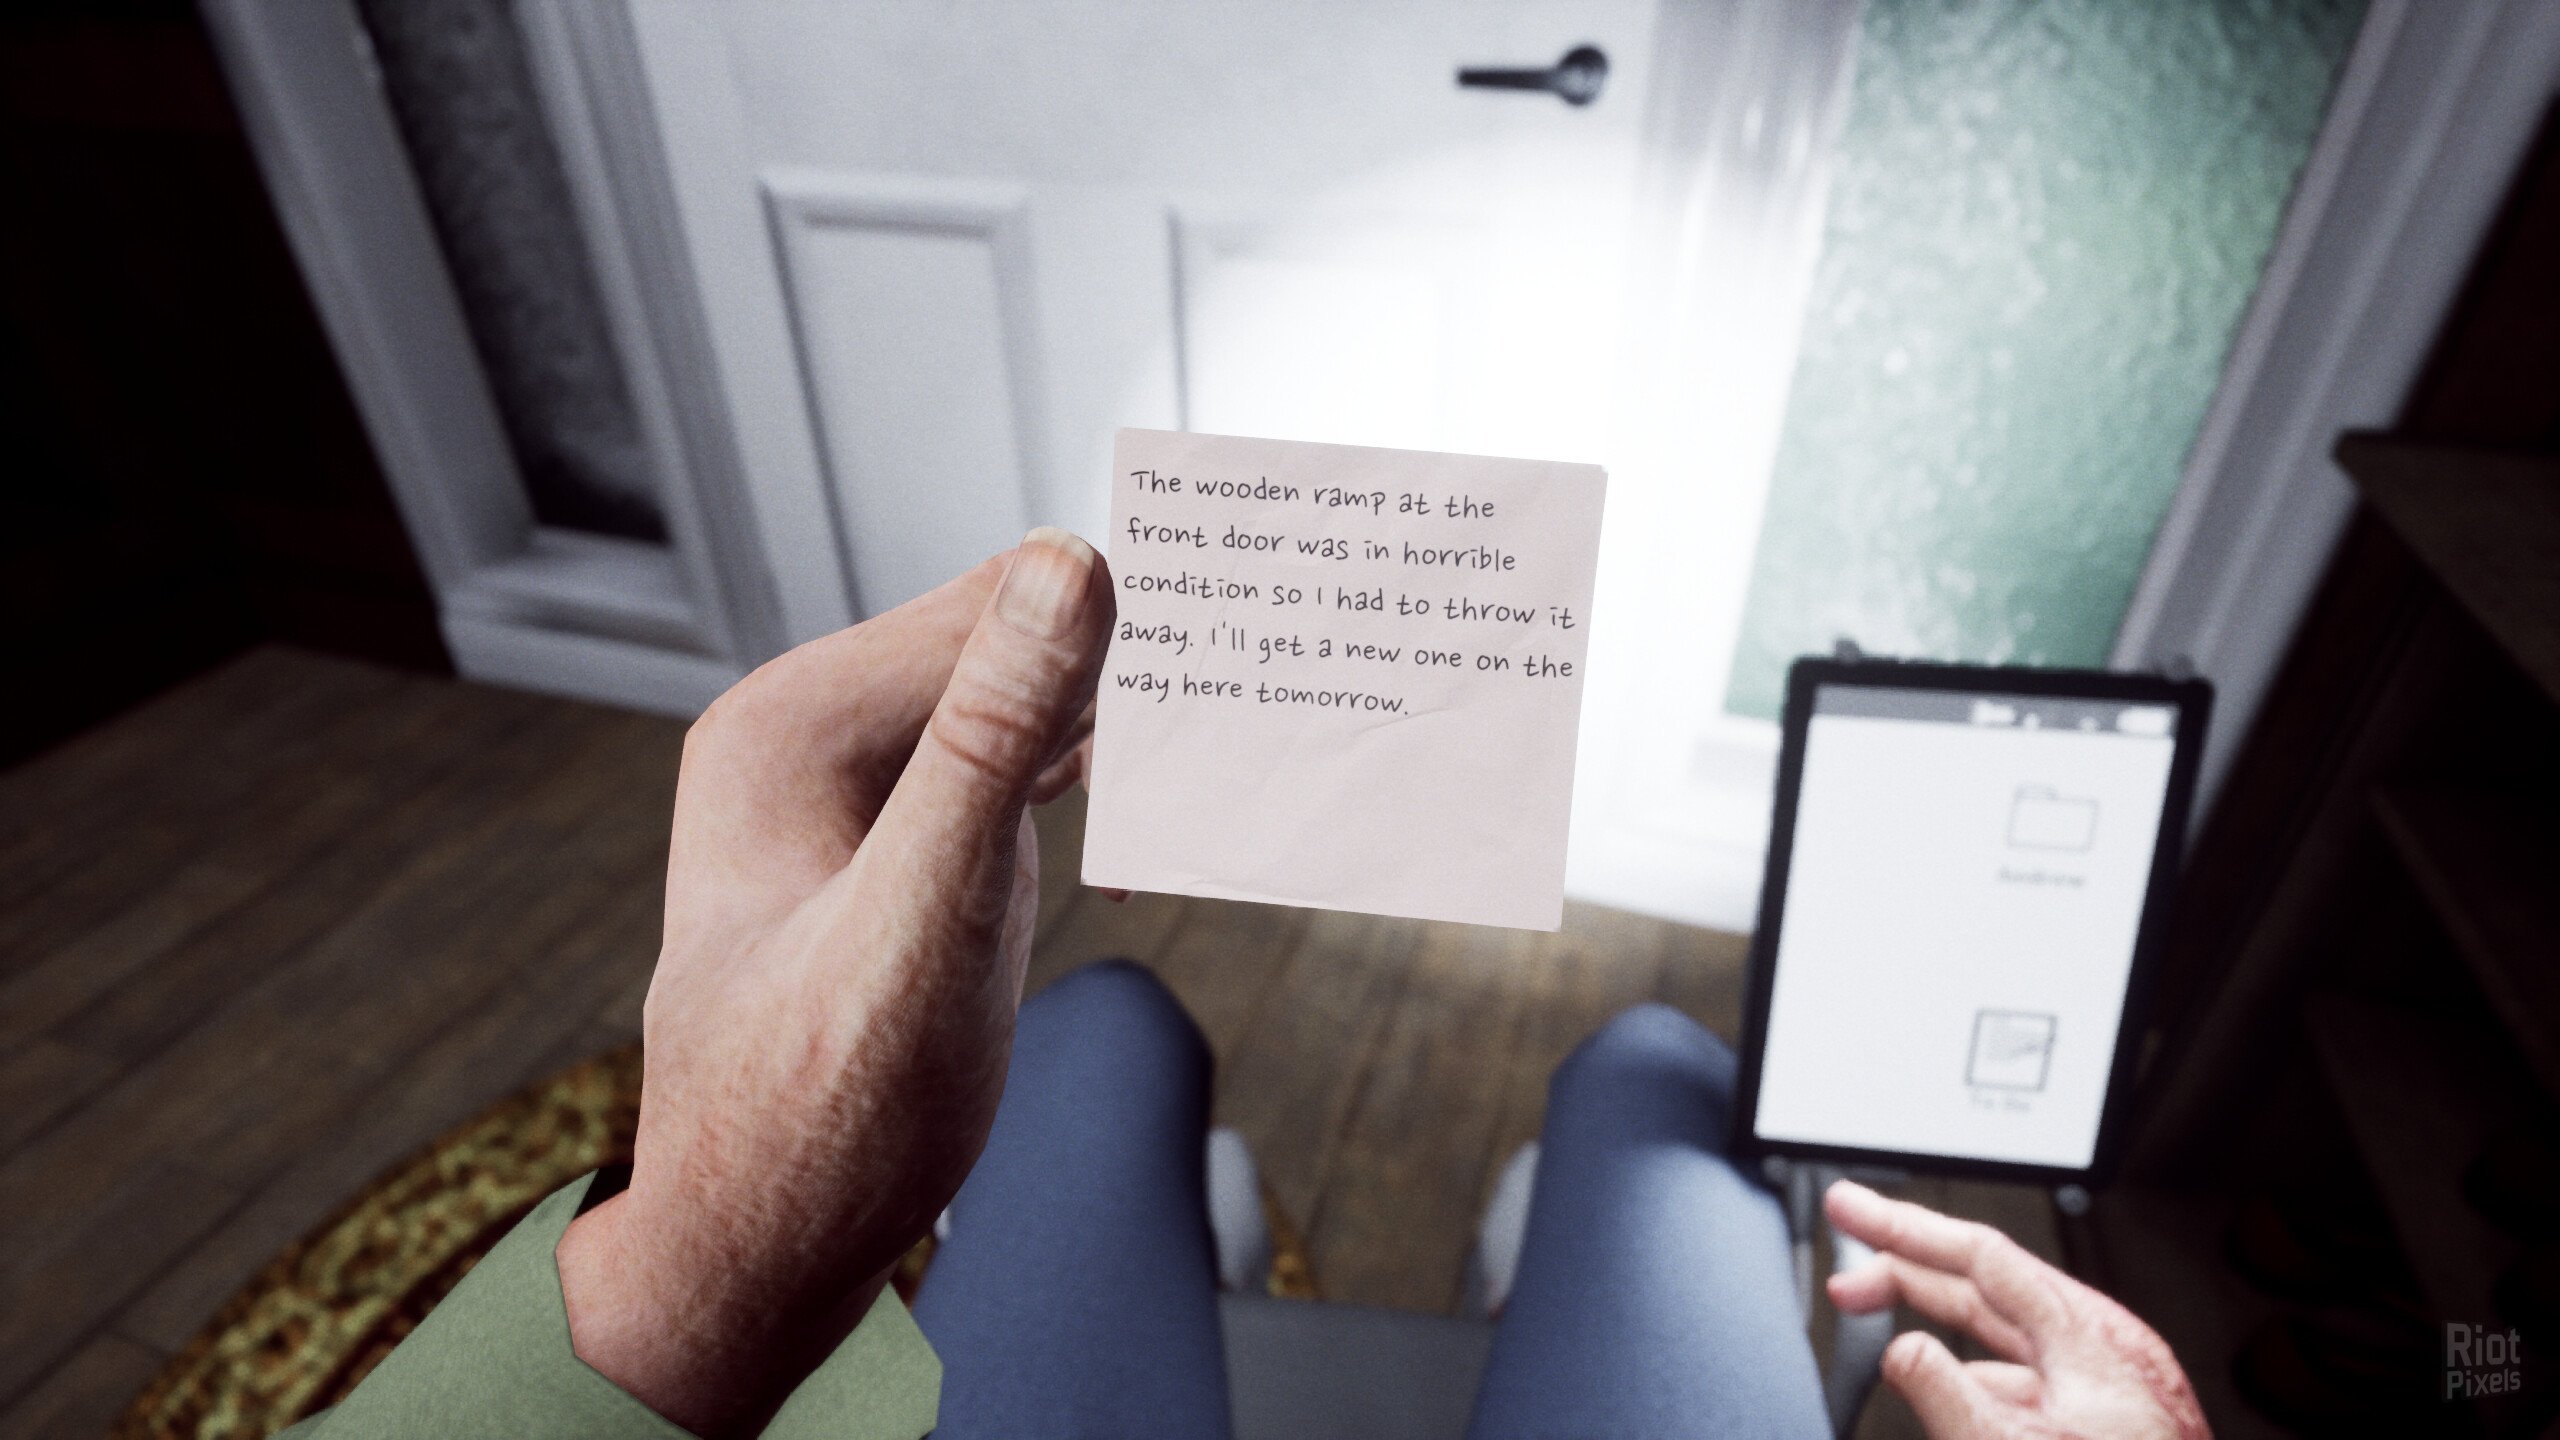 The wooden ramp at the
front door was in horrible
condition so I had to throw it
away. I'll get a new one on the
way here tomorrow.
To Do
Riot
Pixels